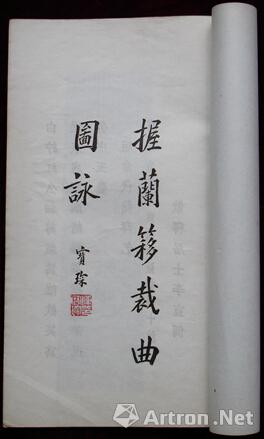 握蘭簃裁曲
圖詠
寶琛
Artron.Net